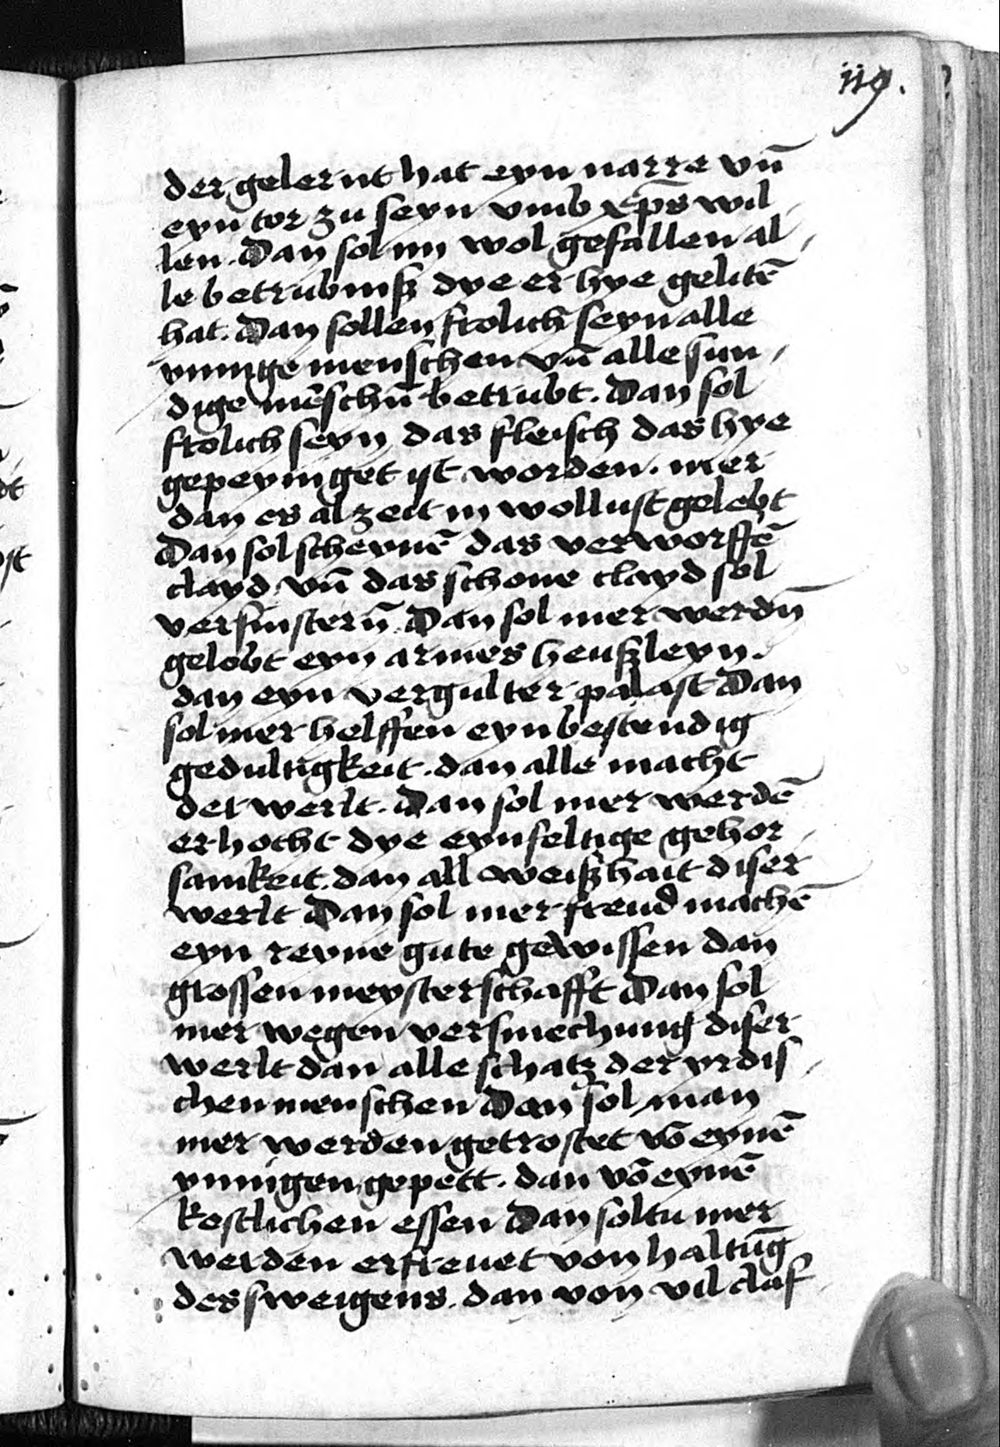 119.
der gelernt hat eyn narre vn̄
eyn tor zu seyn vmb xp̄s wil
len. Dan sol im wol gefallen al
le betrubniß dye er hye gelitē
hat. Dan sollen frolich seyn alle
ynnige menschen vn̄ alle sun
dige mēschn̄ betrubt. Dan sol
frolich seyn das fleisch das hye
gepeyniget ist worden. mer
dan es alzeit in wollust gelebt
Dan sol scheynē das verworffē
clayd vn̄ das schone clayd sol
verfinstern̄. Dan sol mer werdn̄
gelobt eyn armes heußleyn.
dan eyn vergulter palast Dan
sol mer helffen eyn bestendig
gedultigkeit. dan alle macht
der werlt. Dan sol mer werdē
erhocht dye eynfeltige gehor
samkeit. dan all weißhait diser
werlt Dan sol mer freud machē
eyn reyne gute gewissen dan
grossen meysterschafft Dan sol
mer wegen versmechung diser
werlt dan alle schatz der yrdis
chen menschen Dan sol man
mer werden getrostet vō eynē
ynnigen gepett. dan vō eynē
kostlichen essen Dan soltu mer
werden erfreuet von haltūg
des sweigens. dan von vil claf